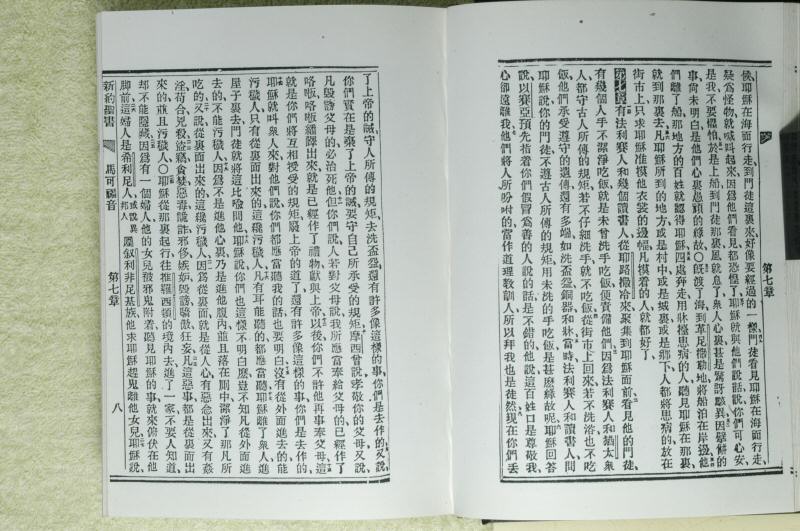 第七章
候、耶穌在海面行走、走到門徒這裏來、好像要經過的一樣、門徒看見耶穌在海面行走、
疑爲怪物、就喊叫起來、因爲他們看見都恐惶了、耶穌就與他們說話、說、你們可心安、
是我、不要懼怕、於是上船到門徒那裏、風就息了、衆人心裏甚是驚訝駭異、因擘餅的
事尚未明白、是他們心裏愚頑的緣故、〇旣渡了海、到革尼撒勒地、將船泊在岸邊、他
們離了船、那地方的百姓就認得耶穌、四處奔走、用牀檯患病的人、聽見耶穌在那裏、
就到那裏去、凡耶穌所到的地方、或是村中、或是城裏、或是鄕下、人都將患病的放在
街市上、只求耶穌准摸他衣裳的邊幅、凡摸着的人就都好了、
第七章 有法利賽人和幾個讀書人、從耶路撒冷來、聚集到耶穌面前、看見他的門徒、
有幾個人手不潔淨吃飯、就是未曾洗手吃飯、便責備他們、因爲法利賽人和猶太衆
人、都守古人所傳的規矩、若不仔細洗手、就不吃飯、從街市上回來、若不洗浴、也不吃
飯、他們承受遵守的遺傳、還有多端、如洗盃盤銅器和牀、當時法利賽人和讀書人問
耶穌說、你的門徒不遵古人所傳的規矩、用未洗的手吃飯、是甚麽緣故呢、耶穌回答
說、以賽亞預先指着你們假冒爲善的人說的話、是不錯的、他說、這百姓口是尊敬我、
心卻遠離我、他們將人所吩咐的、當作道理教訓人、所以拜我也是徒然、現在你們丟
了上帝的誡、守人所傳的規矩、去洗盃盤、還有許多像這樣的事、你們是去作的、又說、
你們實在是棄了上帝的誡、要守自己所承受的規矩、摩西曾說、孝敬你的父母、又說、
凡毀謗父母的必治死他、但你們說、人若對父母說、我所應當奉給父母的、已經作了
咯嘣、咯嘣繙譯出來、就是已經作了禮物獻與上帝、以後你們不許他再事奉父母、這
就是你們將互相授受的規矩、廢上帝的道了、還有許多像這樣的事、你們是去作的、
耶穌就叫衆人來、對他們說、你們都應當聽我的話、也要明白、沒有從外面進去的、能
污穢人、只有從裏面出來的、這纔污穢人、凡有耳能聽的、都應當聽、耶穌離了衆人、進
屋子裏去、門徒就將這比喻問他、耶穌說、你們也這樣不明白麽、豈不知凡從外面進
去的、不能污穢人、因爲不是進他心裏、乃是進他腹內、並且落在厠中、潔淨了那凡所
吃的、又說、從裏面出來的、這纔污穢人、因爲從裏面就是從人心、有惡念出來、又有姦
淫、苟合、兇殺、盜竊、貪婪、惡毒、詭詐、邪侈、嫉妬、毀謗、驕傲、狂妄、凡這惡事都是從裏面出
來的、並且污穢人、〇耶穌從那裏起行、往推羅西頓的境內去、進了一家、不要人知道、
却不能隱藏、因爲有一個婦人、他的女兒被邪鬼附着、聽見耶穌的事、就來俯伏在他
脚前、這婦人是希利尼人、或說異邦人 屬叙利非尼基族、他求耶穌趕鬼離他女兒、耶穌說、
新約聖書 馬可福音 第七章 八